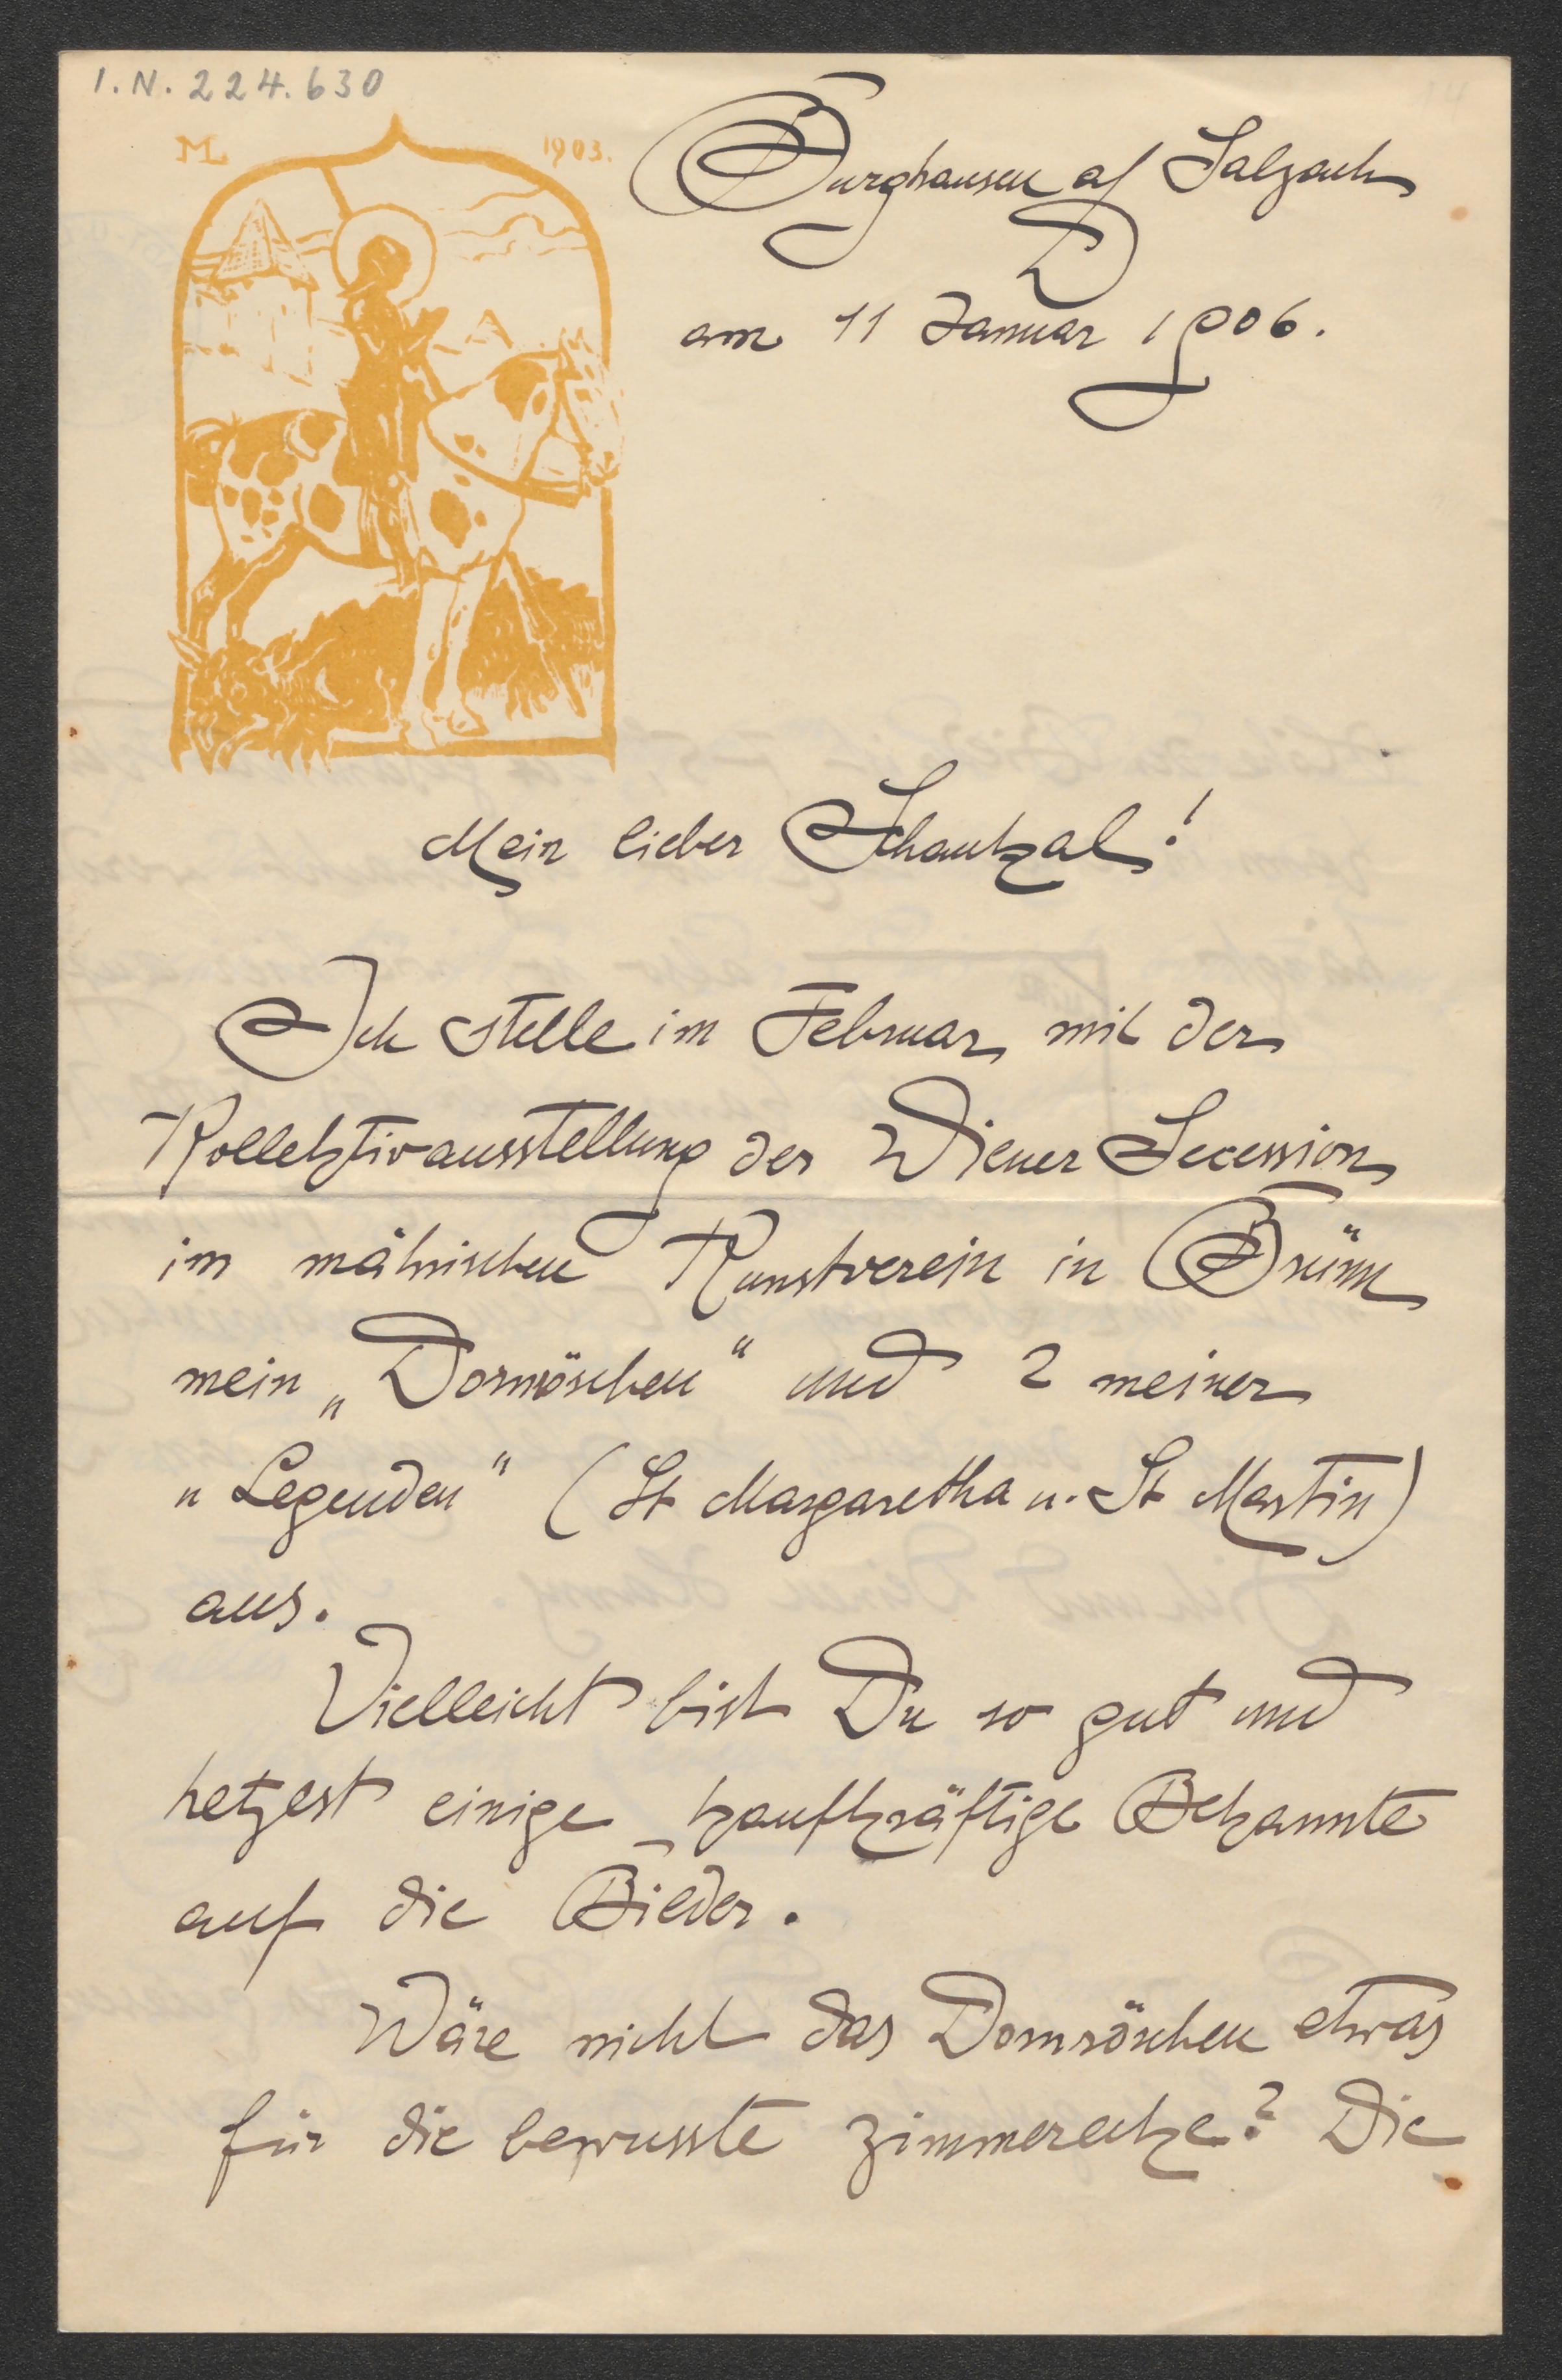 I.N. 224.630
ML 1903.
Burghausen a/ Salzach
am 11 Januar 1906.
Mein lieber Schaukal!
Ich stelle im Februar mit der
Kollektivausstellung der Wiener Secession
im mährischen Kunstverein in Brünn
mein „Dornröschen“ und 2 meiner
„Legenden“ (St Margaretha u. St Martin)
aus.
Vielleicht bist Du so gut und
hetzest einige kaufkräftige Bekannte
auf die Bilder.
Wäre nicht das Dornröschen etwas
für die bewusste Zimmerecke? Die